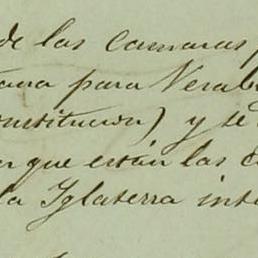 de las camaras
para Verab
onstitucion) y se
que están las
la Yglaterra inte